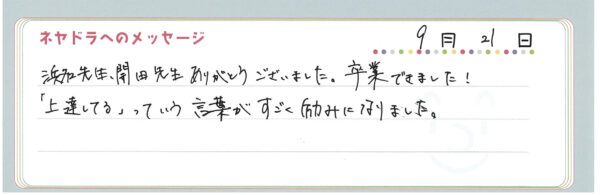 ネヤドラへのメッセージ
9月 21日
浜名先生、開田先生ありがとうございました。卒業できました!
「上達してる」っていう言葉がすごく励みになりました。